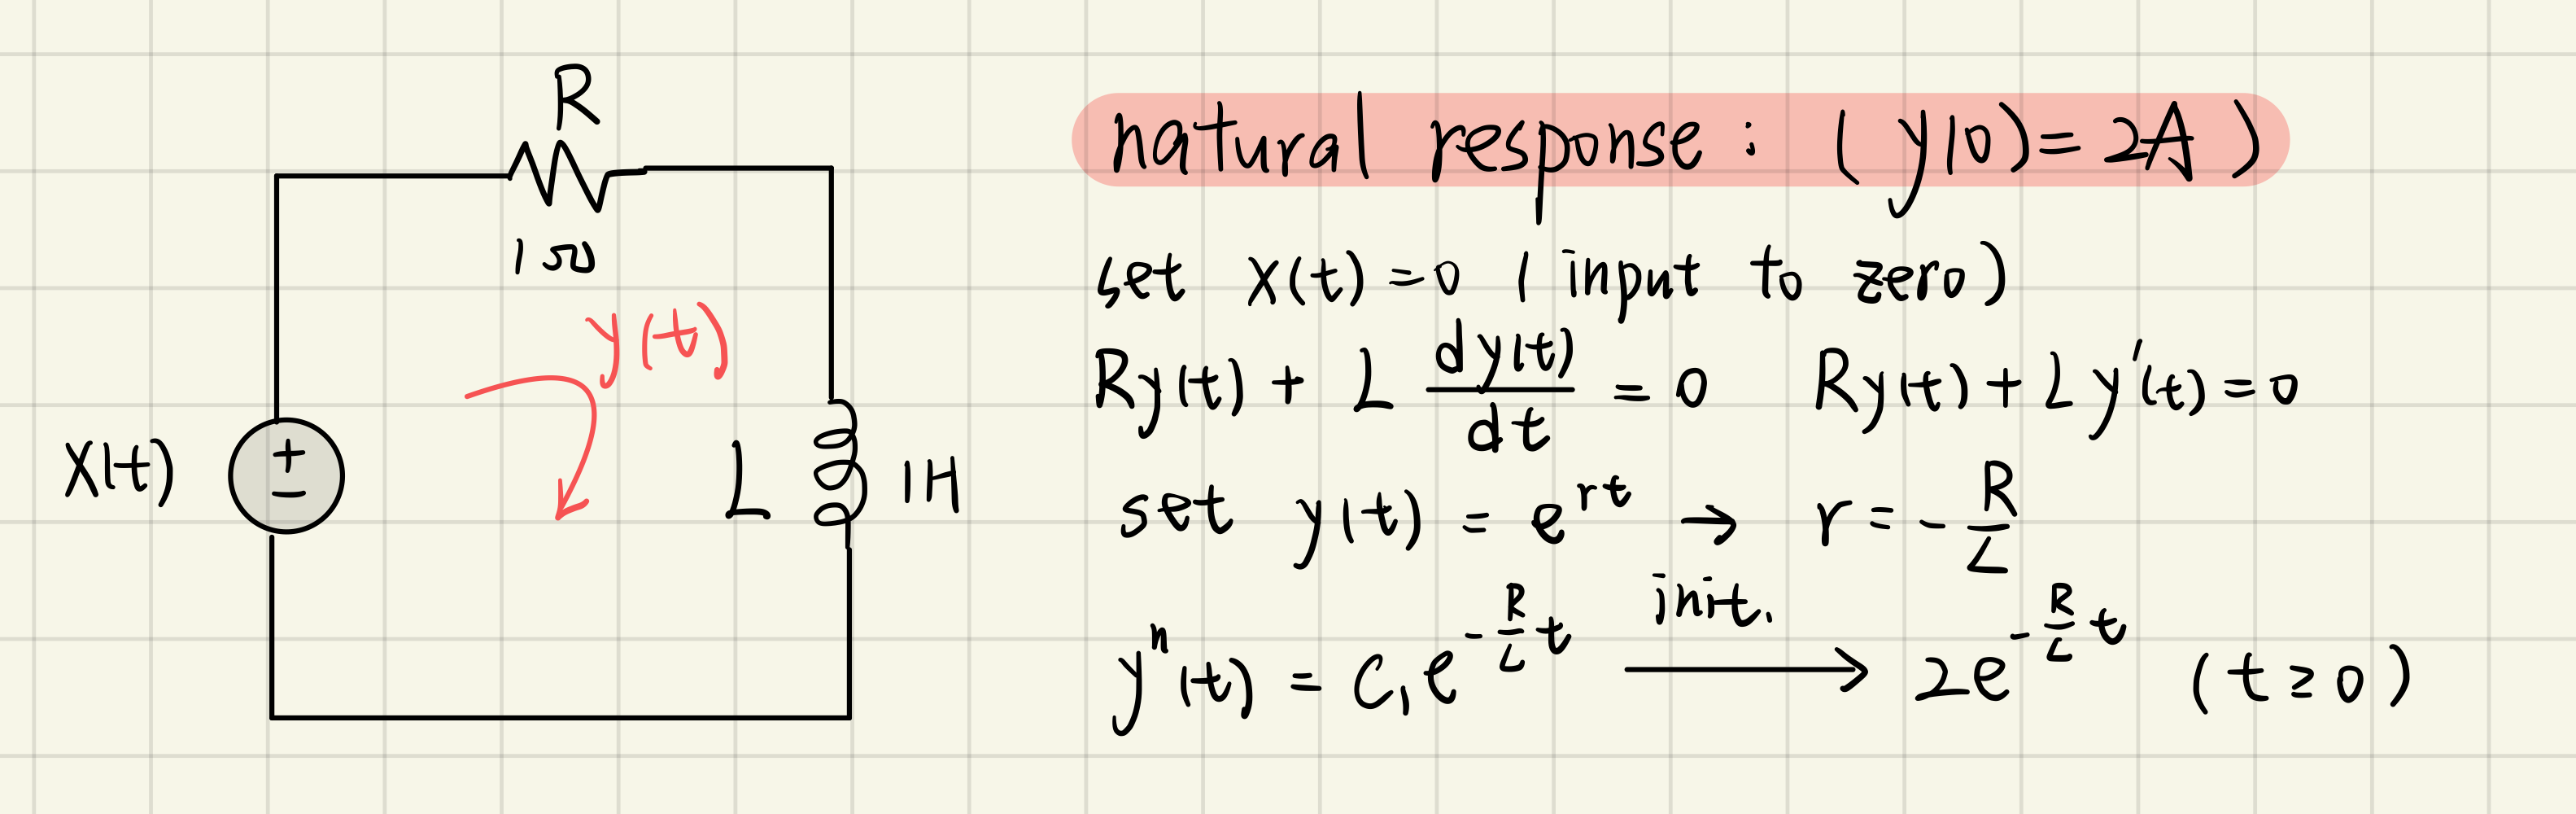 R
1Ω
y(t)
x(t)
+
−
L
1H
natural response : (y(0) = 2A)
set x(t) = 0 (input to zero)
Ry(t) + L dy(t)/dt = 0 Ry(t) + Ly'(t) = 0
set y(t) = e^{rt} → r = -R/L
yⁿ(t) = C₁e^{-R/L t} init. → 2e^{-R/L t} (t ≥ 0)